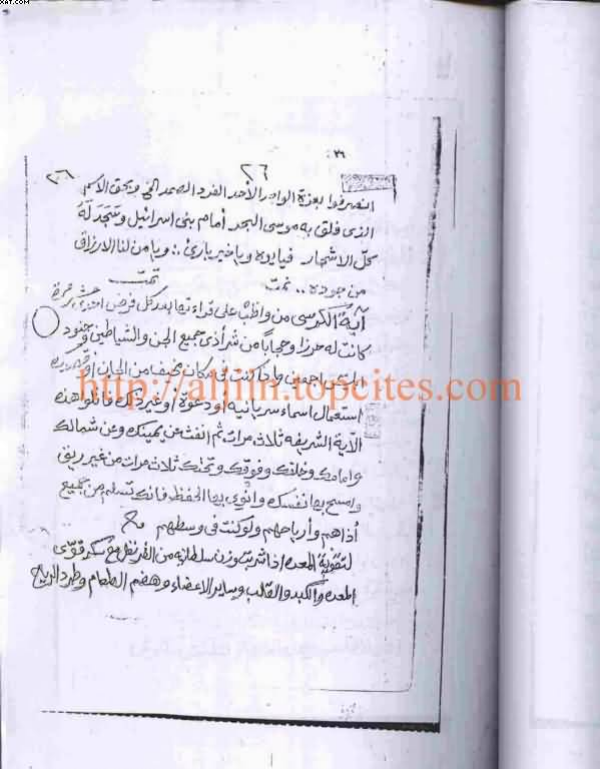 XAT.COM
٣٦
٢٦
٢٦
انصرفوا بعزة الواحد الأحد الفرد الصمد الحي وبحق الاسم
الذي فلق به موسى البحر أمام بني اسرائيل وسجد له
كل الاشجار فيا يوه ويا خير باري ويا من لنا الارزاق
من جوده .. تمت
تمت
آية الكرسي من واظب على قراءتها بعد كل فرض
كانت له حرزا وحجابا من شر أذى جميع الجن والشياطين وجنود
اجمعين فاذا كنت في مكان مخيف من الجان او
http://aljnn.topcites.com
استعمال اسماء سريانيه او دعوة او غير ذلك فاتلو هذه
الآية الشريفه ثلاث مرات ثم انفث عن يمينك وعن شمالك
وامامك وخلفك وفوقك وتحتك ثلاث مرات من غير ريق
وامسح بها نفسك وانوي بها الحفظ فانك تسلم من جميع
أذاهم وأرياحهم ولو كنت في وسطهم
لتقوية المعده اذا شربت وزن سلطانيه من القرنفل مع سكر قوى
المعده والكبد والقلب وساير الاعضاء وهضم الطعام وطرد الرياح